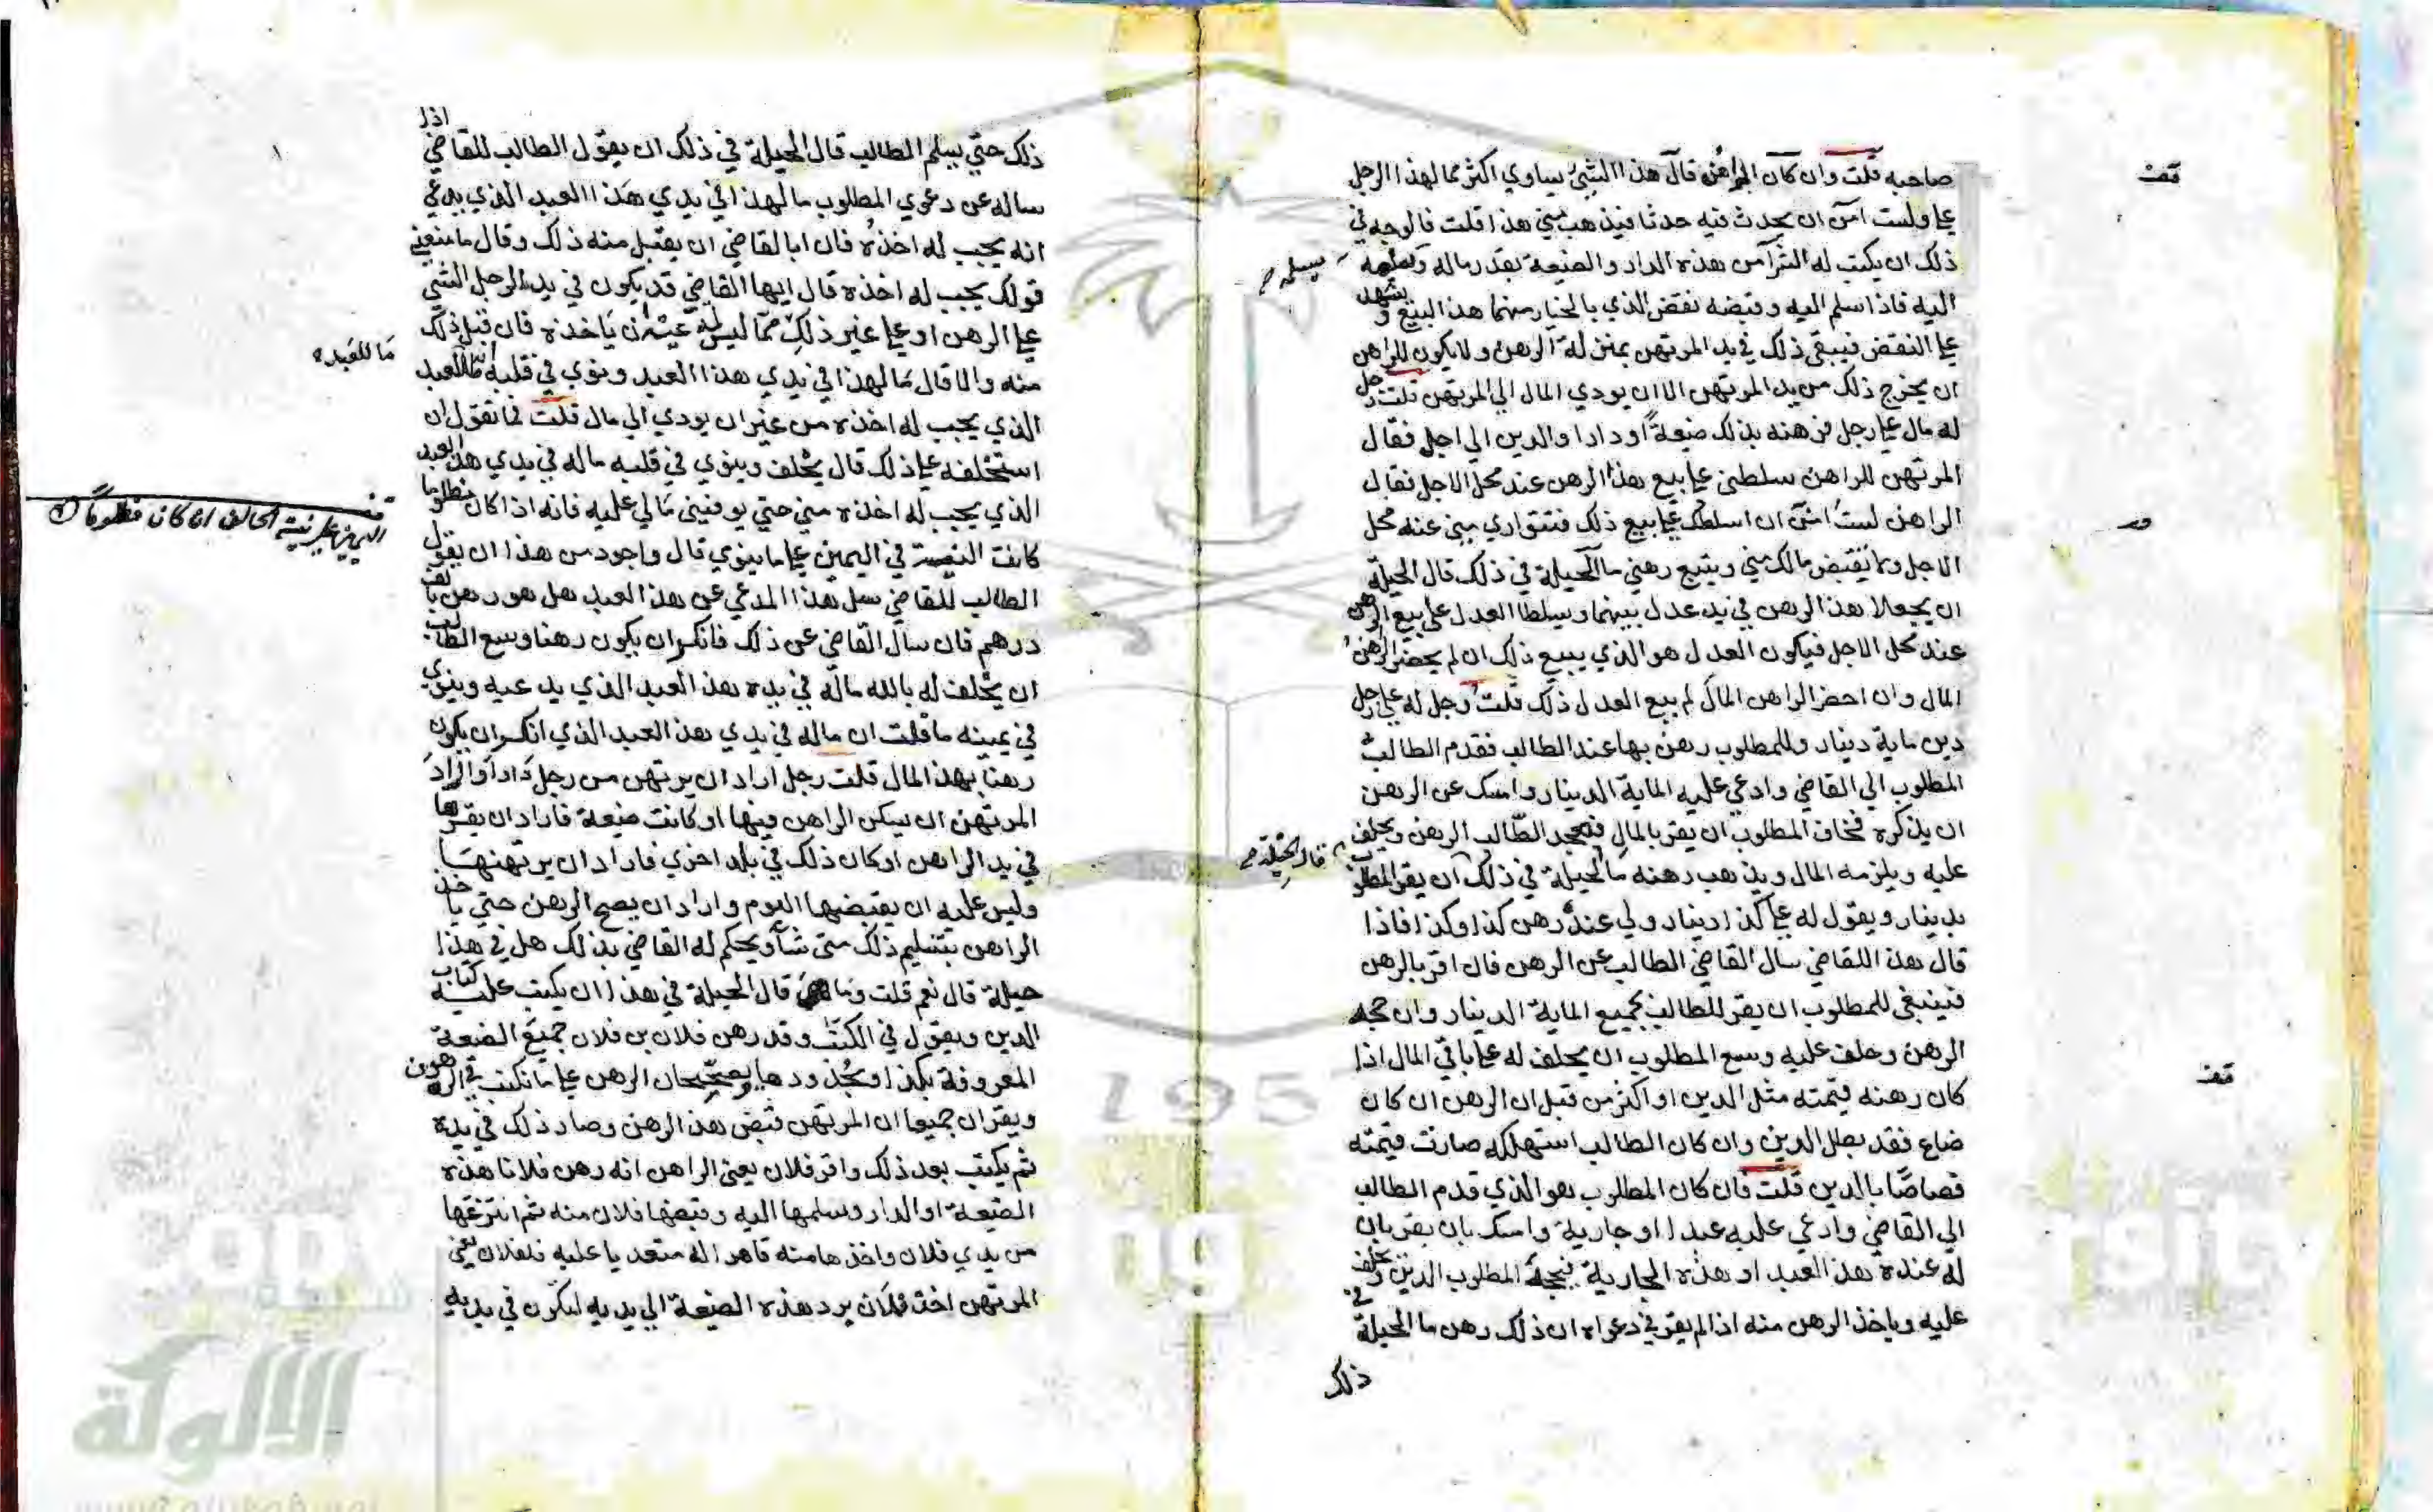 صاحبه قلت وان كان الراهن قال هذا الشيء يساوي اكثر مما لهذا الرجل
علي ولست امن ان يحدث فيه حدثا فيذهب مني هذا قلت فالوجه في
ذلك ان يكتب له الشرآ من هذه الدار والضيعة بقدر ماله ويسلمه
اليه فاذا سلم اليه وقبضه نقض الذي بالخيار منهما هذا البيع ويشهد
علي النقض فيبقي ذلك في يد المرتهن بمنزلة الرهن ولا يكون للراهن
ان يخرج ذلك من يد المرتهن الا ان يودي المال الي المرتهن قلت رجل
له مال علي رجل فرهنه بذلك ضيعة او دارا والدين الي اجل فقال
المرتهن للراهن سلطني علي بيع هذا الرهن عند محل الاجل فقال
الراهن لست امن ان اسلطك علي بيع ذلك فتتواري مني عند محل
الاجل ولا تقبض مالك مني وتبيع رهني ما الحيلة في ذلك قال الحيلة
ان يجعلا هذا الرهن في يد عدل بينهما ويسلطا العدل علي بيع الرهن
عند محل الاجل فيكون العدل هو الذي يبيع ذلك ان لم يحضر الراهن
المال وان احضر الراهن المال لم يبع العدل ذلك قلت رجل له علي رجل
دين ماية دينار وللمطلوب رهن بها عند الطالب فقدم الطالب
المطلوب الي القاضي وادعي عليه الماية الدينار وامسك عن الرهن
ان يذكره فخاف المطلوب ان يقر بالمال فيجحد الطالب الرهن ويحلف
عليه ويلزمه المال ويذهب رهنه ما الحيلة في ذلك ان يقر المطلوب
بدينار ويقول له علي كذا دينار ولي عنده رهن كذا وكذا فاذا
قال هذا للقاضي سال القاضي الطالب عن الرهن فان اقر بالرهن
فينبغي للمطلوب ان يقر للطالب بجميع الماية الدينار وان جحد
الرهن وحلف عليه وسع المطلوب ان يحلف له علي باقي المال اذا
كان رهنه قيمته مثل الدين او اكثر من قبل ان الرهن ان كان
ضاع فقد بطل الدين وان كان الطالب استهلكه صارت قيمته
قصاصا بالدين قلت فان كان المطلوب هو الذي قدم الطالب
الي القاضي وادعي عليه عبدا او جارية وامسك بان يقر بان
له عنده هذا العبد او هذه الجارية فيجحد المطلوب الدين ويحلف
عليه وياخذ الرهن منه اذا لم يقر في دعواه ان ذلك رهن ما الحيلة في
ذلك
قف
يسلمه صح
قال الحيلة صح
قف
ذلك حتي يسلم الطالب قال الحيلة في ذلك ان يقول الطالب للقاضي اذا
ساله عن دعوي المطلوب ما لهذا في يدي هذا العبد الذي يدعي
انه يجب له اخذه فان ابا القاضي ان يقبل منه ذلك وقال ما معني
قولك يجب له اخذه قال ايها القاضي قد يكون في يد الرجل الشي
علي الرهن او علي غير ذلك مما ليس له ان ياخذه فان قبل ذلك
منه والا قال ما لهذا في يدي هذا العبد وينوي في قلبه العبد
الذي يجب له اخذه من غير ان يودي الي مال قلت فما تقول ان
استحلفه علي ذلك قال يحلف وينوي في قلبه ما له في يدي هذا العبد
الذي يجب له اخذه مني حتي يوفيني ما لي عليه فانه اذا كان مظلوما
كانت النية في اليمين علي ما ينوي قال واجود من هذا ان يقول
الطالب للقاضي سل هذا المدعي عن هذا العبد هل هو رهن بالف
درهم فان سال القاضي عن ذلك فانكر ان يكون رهنا وسع الطالب
ان يحلف له بالله ماله في يده هذا العبد الذي يدعيه وينوي
في يمينه ما قلت ان ماله في يدي هذا العبد الذي انكر ان يكون
رهنا بهذا المال قلت رجل اراد ان يرتهن من رجل دارا واراد
المرتهن ان يسكن الراهن فيها او كانت ضيعة فاراد ان يقرها
في يد الراهن او كان ذلك في بلد اخري فاراد ان يرتهنها
وليس عليه ان يقبضها اليوم واراد ان يصح الرهن حتي ياخذ
الراهن بتسليم ذلك متي شا ويحكم له القاضي بذلك هل في هذا
حيلة قال نعم قلت وما هي قال الحيلة في هذا ان يكتب عليه كتاب
الدين ويقول في الكتاب وقد رهن فلان بن فلان جميع الضيعة
المعروفة بكذا وبحدودها ويصححان الرهن علي ما نكتب في الرهون
ويقران جميعا ان المرتهن قبض هذا الرهن وصار ذلك في يده
ثم يكتب بعد ذلك واقر فلان يعني الراهن انه رهن فلانا هذه
الضيعة او الدار وسلمها اليه وقبضها فلان منه ثم انتزعها
من يدي فلان واخذها منه قاهرا له متعديا عليه فلفلان يعني
المرتهن اخذ فلان برد هذه الضيعة الي يديه لتكون في يديه
ما للعبد
قف
اليمين علي نية الحالف ان كان مظلوما